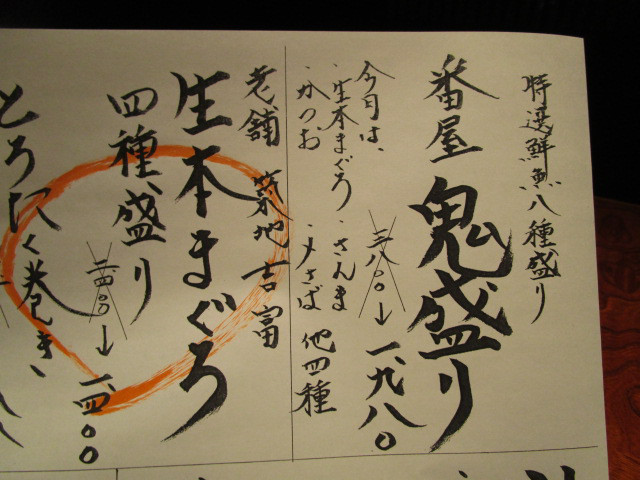 特選鮮魚八種盛り
番屋 鬼盛り
今月は、
二八〇〇→一、九八〇
・生本まぐろ ・さんま
・かつお ・〆さば 他四種
老舗 築地吉冨
生本まぐろ
四種盛り
二四〇〇→一、四〇〇
とろたく巻き、